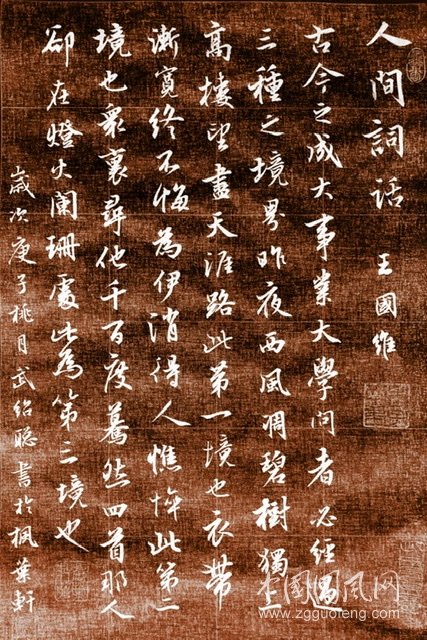 人間詞話 王國維
古今之成大事業大學問者必經過
三種之境界昨夜西風凋碧樹獨上
高樓望盡天涯路此第一境也衣帶
漸寬終不悔為伊消得人憔悴此第二
境也衆裏尋他千百度驀然回首那人
卻在燈火闌珊處此為第三境也
歲次庚子桃月武紹聰書於楓葉軒
中国国风网
www.zgguofeng.com